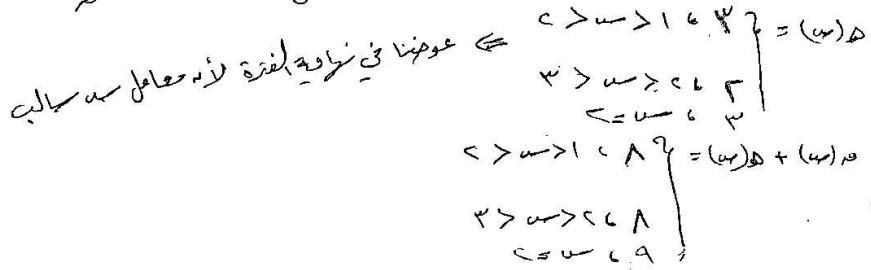 هـ(س) = { ٣ ، ١ < س < ٢
٢ ، ٢ < س < ٣ ⇐ عوضنا في نهاية الفترة لأنه معامل س سالب
٣ ، س = ٢
ق(س) + هـ(س) = { ٨ ، ١ < س < ٢
٨ ، ٢ < س < ٣
٩ ، س = ٢